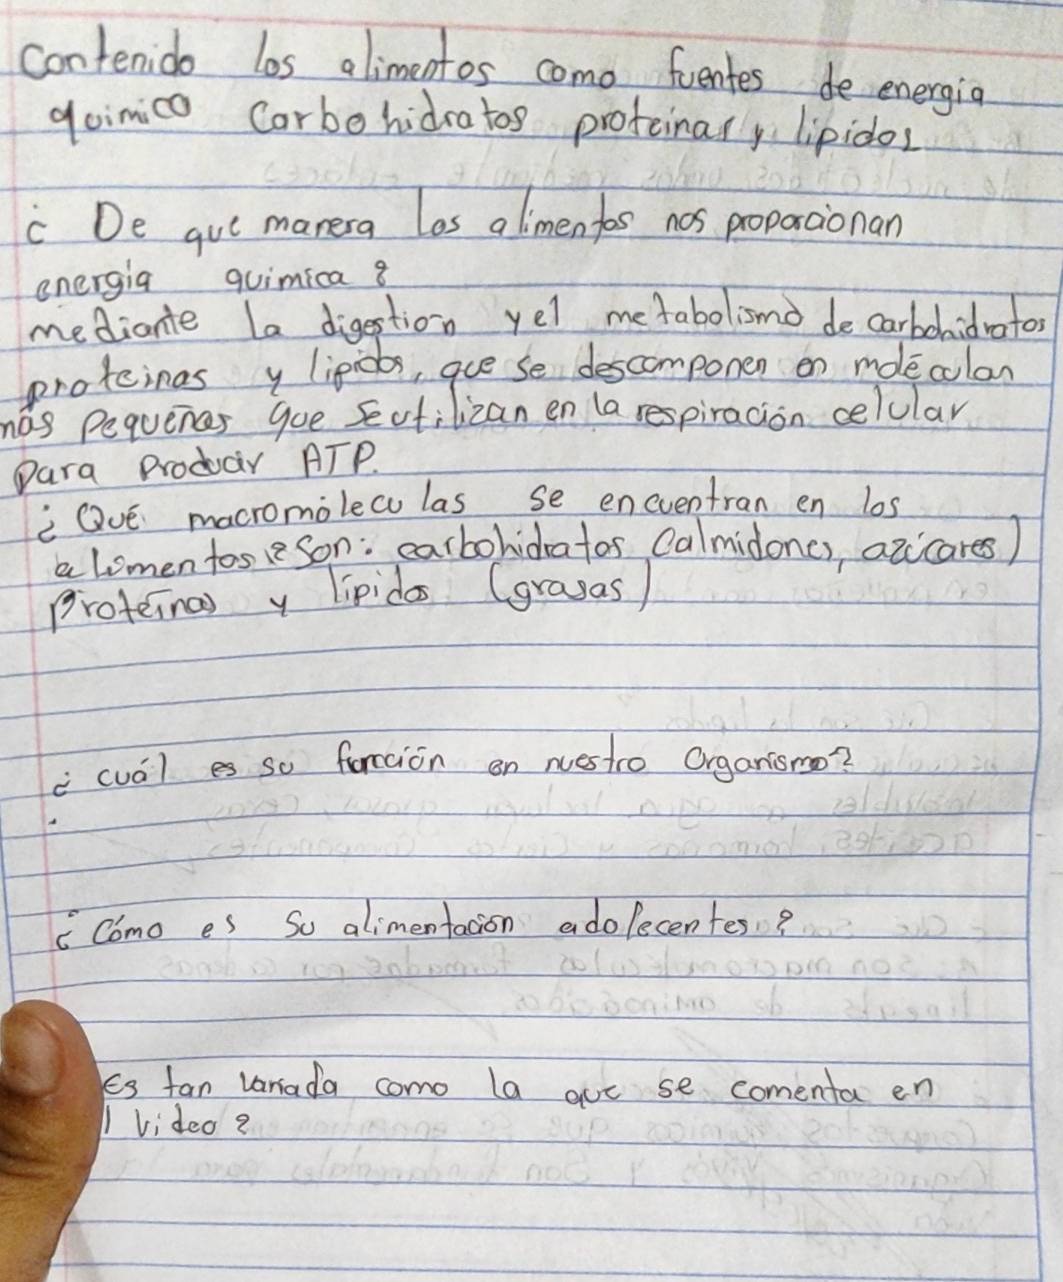 Contenido los alimentos como fuentes de energia
quimica Carbohidratos proteinas y lipidos
¿ De que manera los alimentos nos proporcionan
energia quimica ?
mediante la digestion y el metabolismo de carbohidratos
proteinas y lipidos, que se descomponen en moléculan
más pequeñas que se utilizan en la respiración celular
para producir ATP.
¿ Qué macromóleculas se encuentran en los
alimentos ? son: carbohidratos (almidones, azúcares)
Proteínas y lípidos (grasas)
¿ cuál es su función en nuestro Organismo?
¿ Cómo es su alimentación adolecentes ?
Es tan variada como la que se comenta en
l video ?